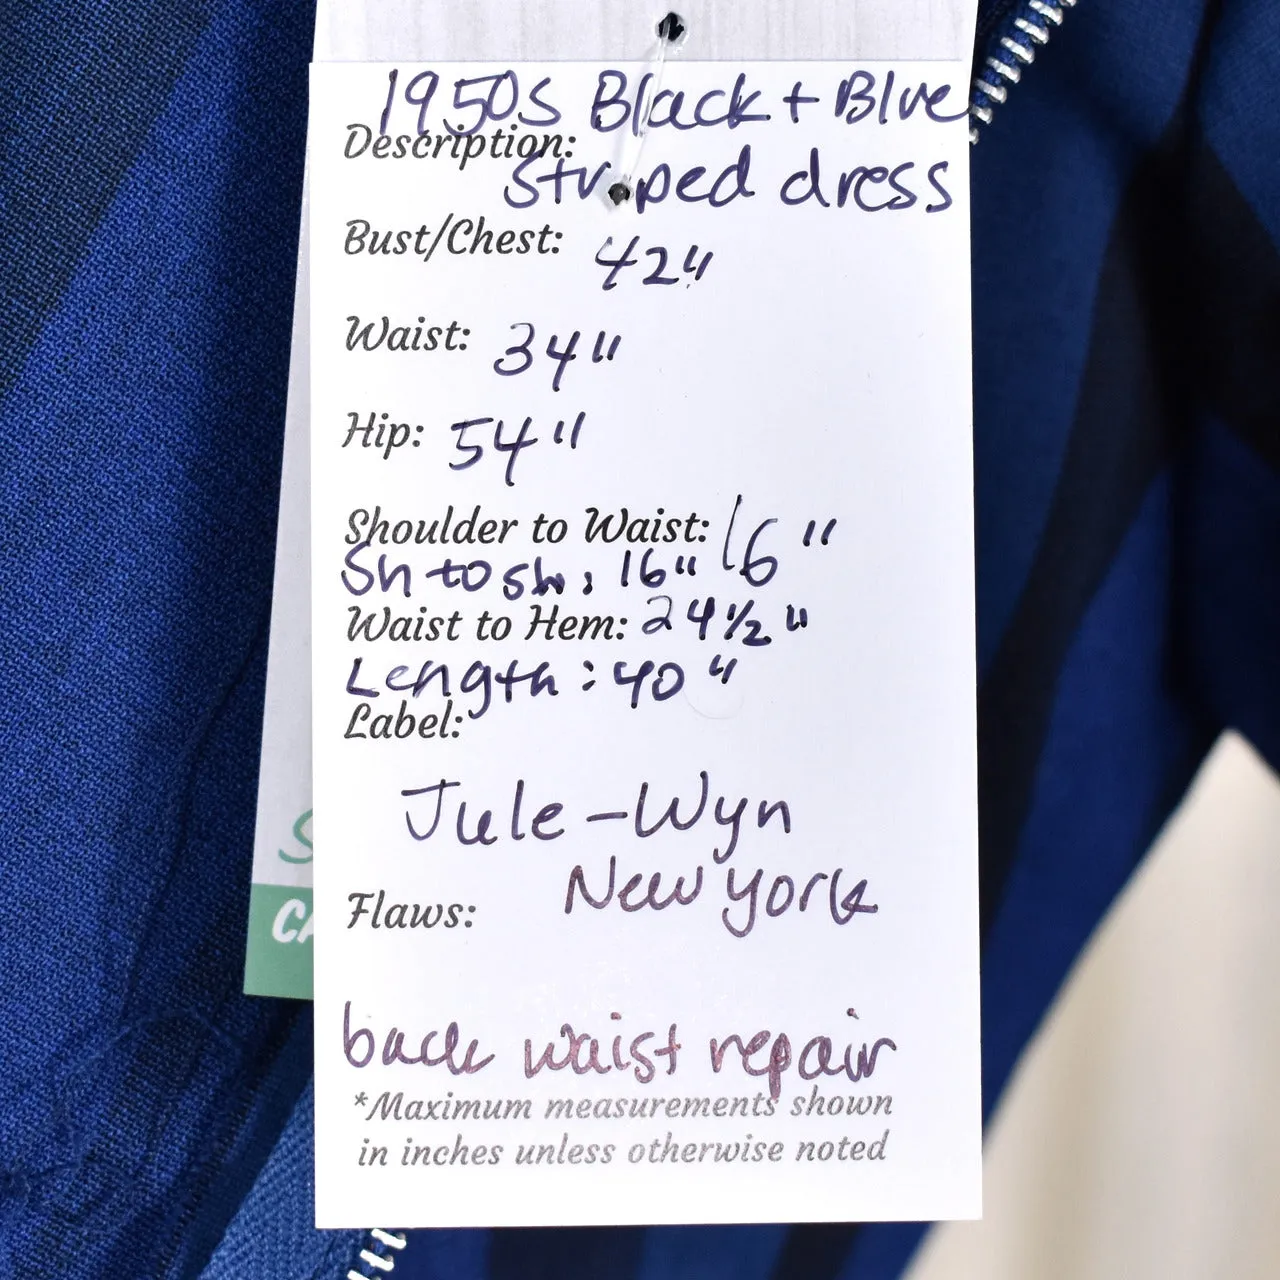 1950s Black + Blue
Description:
striped dress
Bust/Chest: 42"
Waist: 34"
Hip: 54"
Shoulder to Waist: 16"
Sh to sh: 16"
Waist to Hem: 24 1/2"
Length: 40"
Label:
Jule-Wyn
New York
Flaws:
back waist repair
*Maximum measurements shown
in inches unless otherwise noted